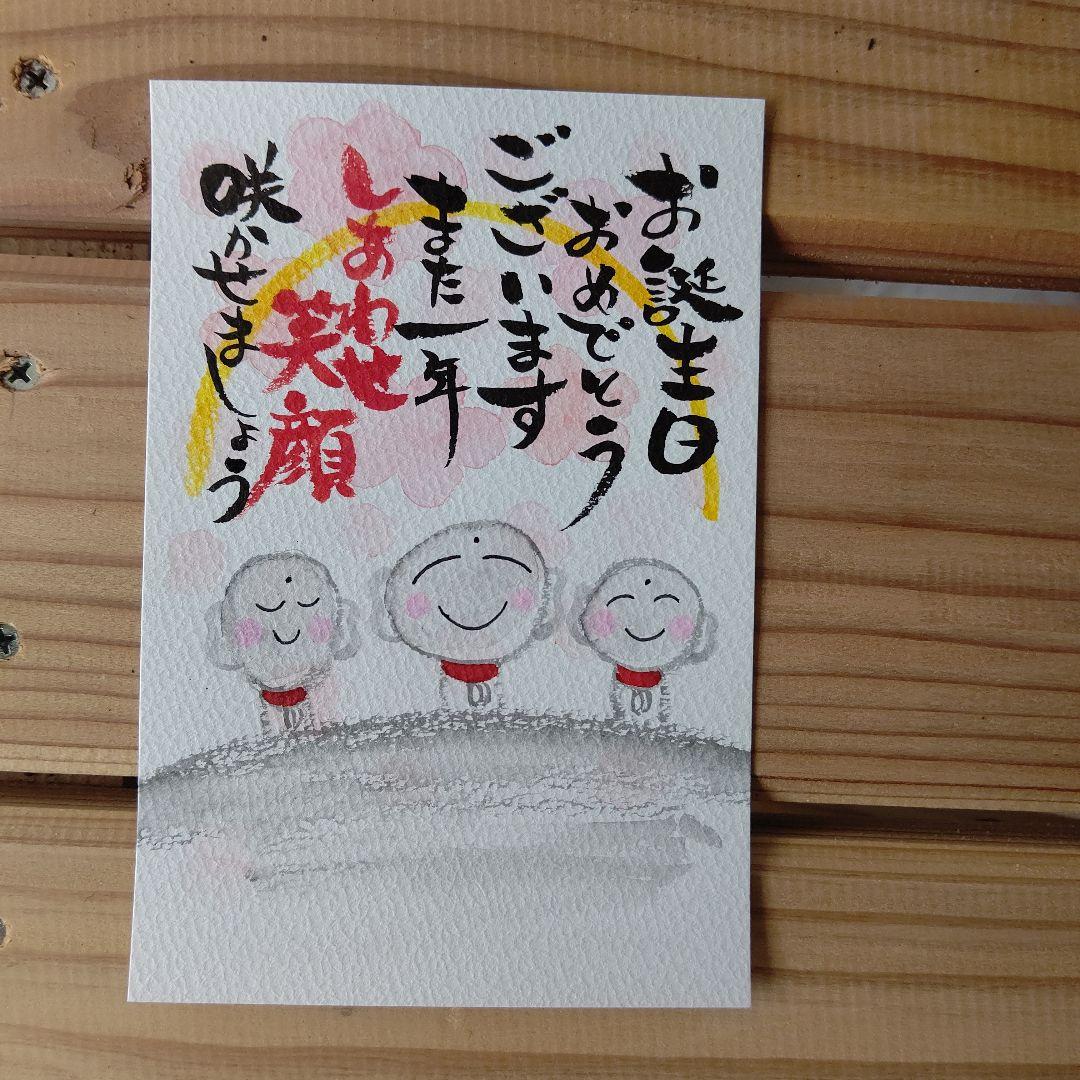 お誕生日
おめでとう
ございます
また一年
しあわせ
笑顔
咲かせましょう